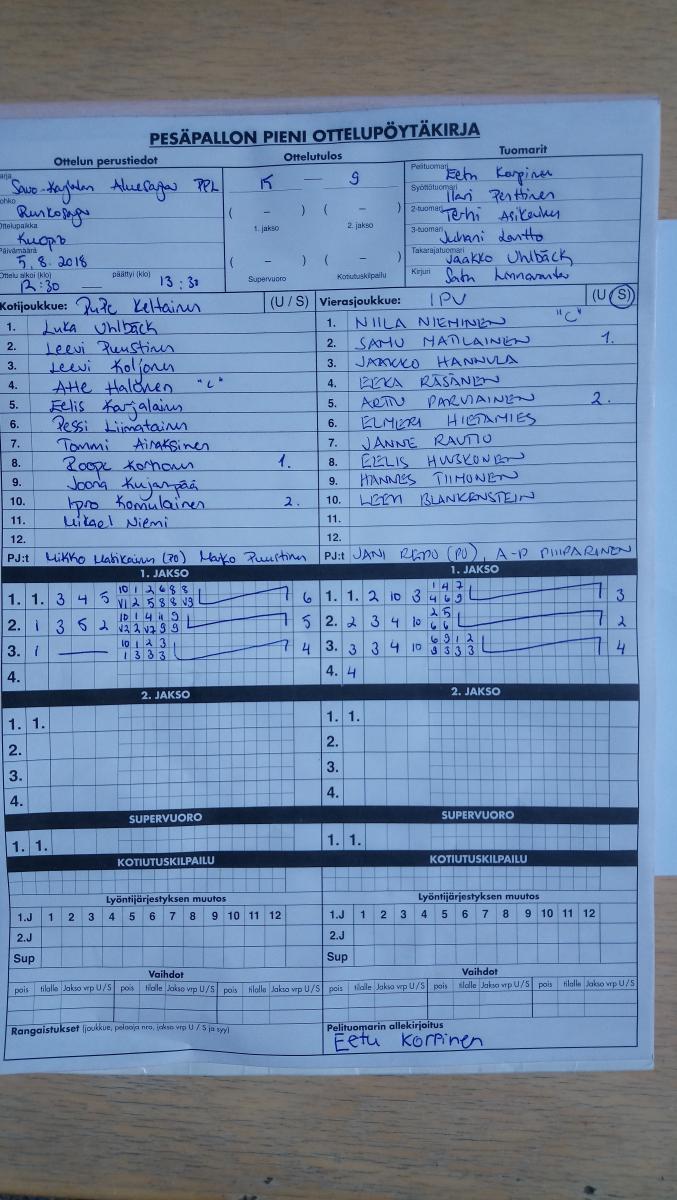 PESÄPALLON PIENI OTTELUPÖYTÄKIRJA
Ottelun perustiedot
Ottelutulos
Tuomarit
Savo-Karjalan Aluesarja PPL
Runkosarja
Ottelupaikka
Kuopio
Päivämäärä
5.8.2018
Ottelu alkoi (klo) päättyi (klo)
12:30 13:30
15 — 9
( – ) ( – )
1. jakso 2. jakso
( – ) ( – )
Supervuoro Kotiutuskilpailu
Pelituomari Eetu Korpinen
Syöttötuomari Ilari Penttinen
2-tuomari Terhi Asikainen
3-tuomari Juhani
Takarajatuomari Jaakko Uhlbäck
Kirjuri Satu
Kotijoukkue: PuPe Keltainen (U / S)
1. Luka Uhlbäck
2. Leevi Puustinen
3. Leevi Koljonen
4. Atte Halonen "C"
5. Eelis Karjalainen
6. Pessi Liimatainen
7. Tommi Airaksinen
8. Roope Korhonen 1.
9. Joona Kujanpää
10. Iiro Komulainen 2.
11. Mikael Niemi
12.
PJ:t Mikko Matikainen (PJ) Marko Puustinen
Vierasjoukkue: IPV (U / S)
1. NIILA NIEMINEN "C"
2. SAMU MATILAINEN 1.
3. JAAKKO HANNULA
4. EEKA RÄSÄNEN
5. ARTTU PARVIAINEN 2.
6. ELMERI HIETAMIES
7. JANNE RAUTIO
8. EELIS HUUSKONEN
9. HANNES TIIHONEN
10. LEEVI BLANKENSTEIN
11.
12.
PJ:t JANI REPO (PJ), A-P PIIPARINEN
1. JAKSO
1. 1. 3 4 5 10 1 2 6 8 8 6
V1 2 5 8 8 V9
2. 1 3 5 2 10 1 4 11 9 5
V2 2 V2 9 9
3. 1 — 10 1 2 3 4
1 3 3 3
4.
1. JAKSO
1. 1. 2 10 3 1 4 7 3
4 6 9
2. 2 3 4 10 2 5 2
6 6
3. 3 3 4 10 6 9 1 2 4
9 3 3 3
4. 4
2. JAKSO
1. 1.
2.
3.
4.
2. JAKSO
1. 1.
2.
3.
4.
SUPERVUORO
1. 1.
SUPERVUORO
1. 1.
KOTIUTUSKILPAILU
KOTIUTUSKILPAILU
Lyöntijärjestyksen muutos
1.J 1 2 3 4 5 6 7 8 9 10 11 12
2.J
Sup
Lyöntijärjestyksen muutos
1.J 1 2 3 4 5 6 7 8 9 10 11 12
2.J
Sup
Vaihdot
pois tilalle Jakso vrp U/S pois tilalle Jakso vrp U/S pois tilalle Jakso vrp U/S
Vaihdot
pois tilalle Jakso vrp U/S pois tilalle Jakso vrp U/S pois tilalle Jakso vrp U/S
Rangaistukset (joukkue, pelaaja nro, jakso vrp U / S ja syy)
Pelituomarin allekirjoitus
Eetu Korpinen